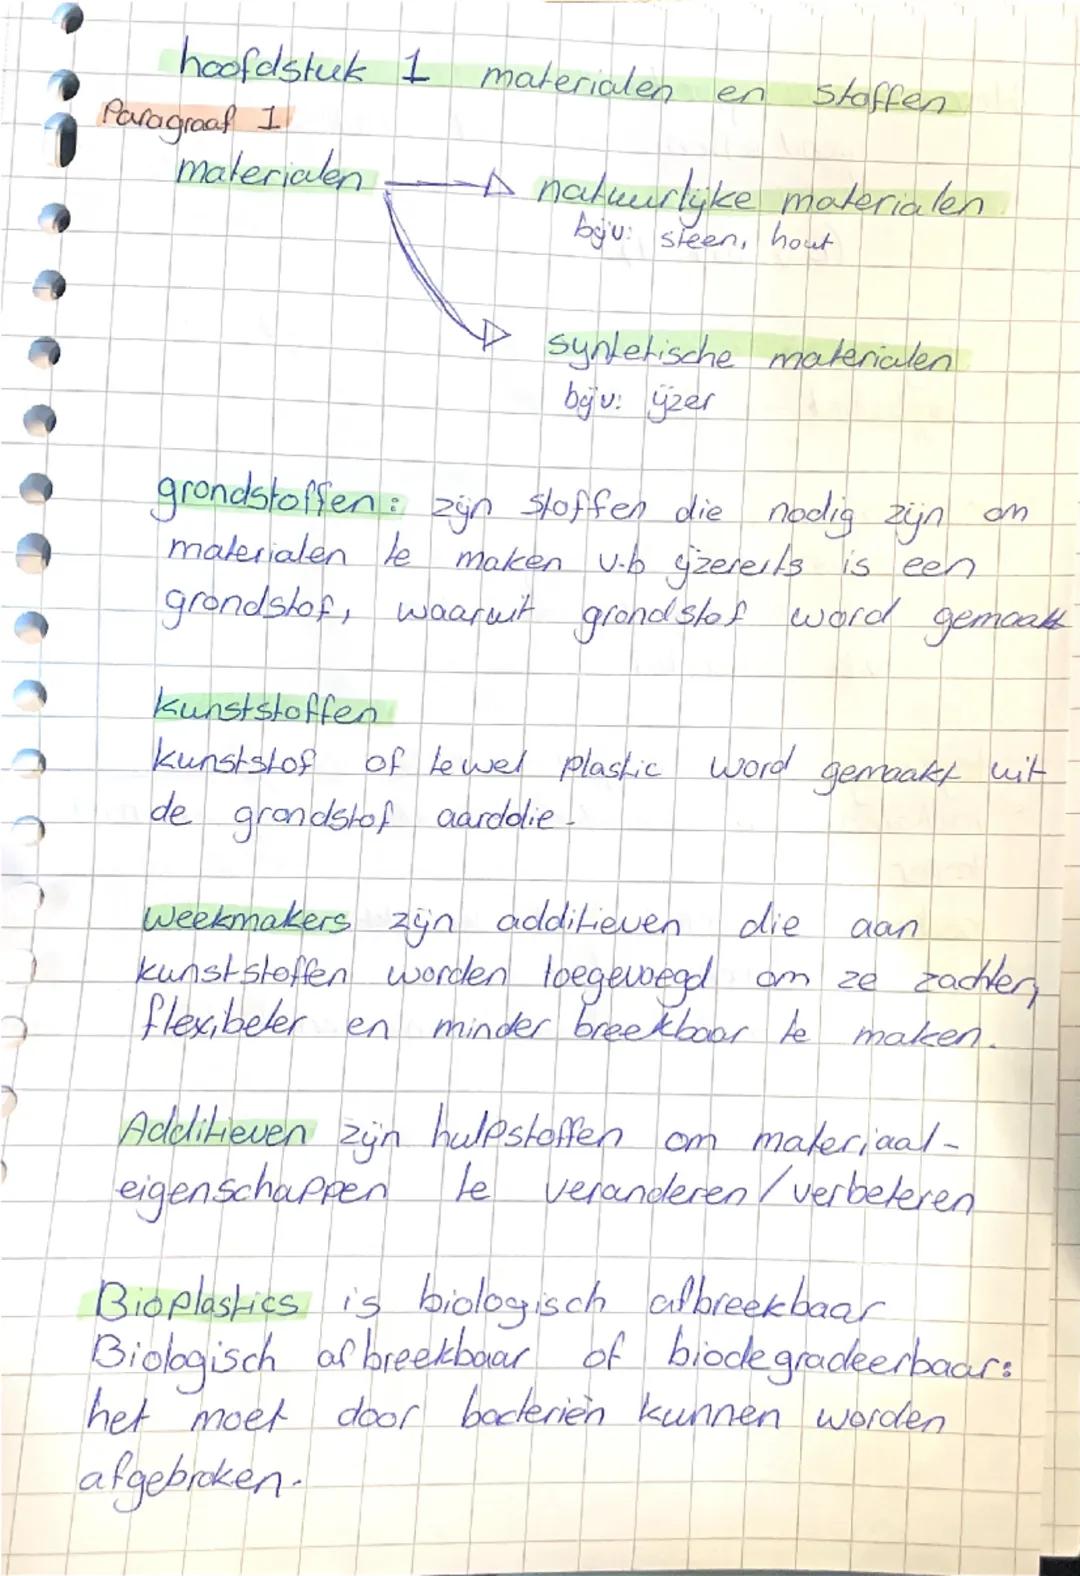 hoofdstuk 1 materialen en stoffen
Paragraaf 1
materialen → natuurlijke materialen
bijv: steen, hout
syntetische materialen
bijv: ijzer
grondstoffen: zijn stoffen die nodig zijn om
materialen te maken v.b ijzererts is een
grondstof, waaruit grondstof word gemaakt
kunststoffen
kunststof of tewel plastic word gemaakt uit
de grondstof aardolie.
weekmakers zijn additieven die aan
kunststoffen worden toegevoegd om ze zachter,
flexibeler en minder breekbaar te maken.
Additieven zijn hulpstoffen om materiaal-
eigenschappen te veranderen/verbeteren
Bioplastics is biologisch afbreekbaar
Biologisch afbreekbaar of biodegradeerbaar:
het moet door bacteriën kunnen worden
afgebroken.